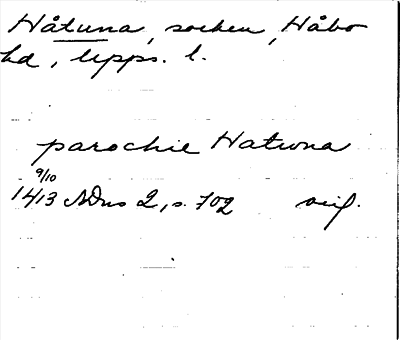 Håtuna, socken, Håbo
hd, Upps. l.
parochie Hatwna
9/10
1413 SDns 2, s. 702 orig.